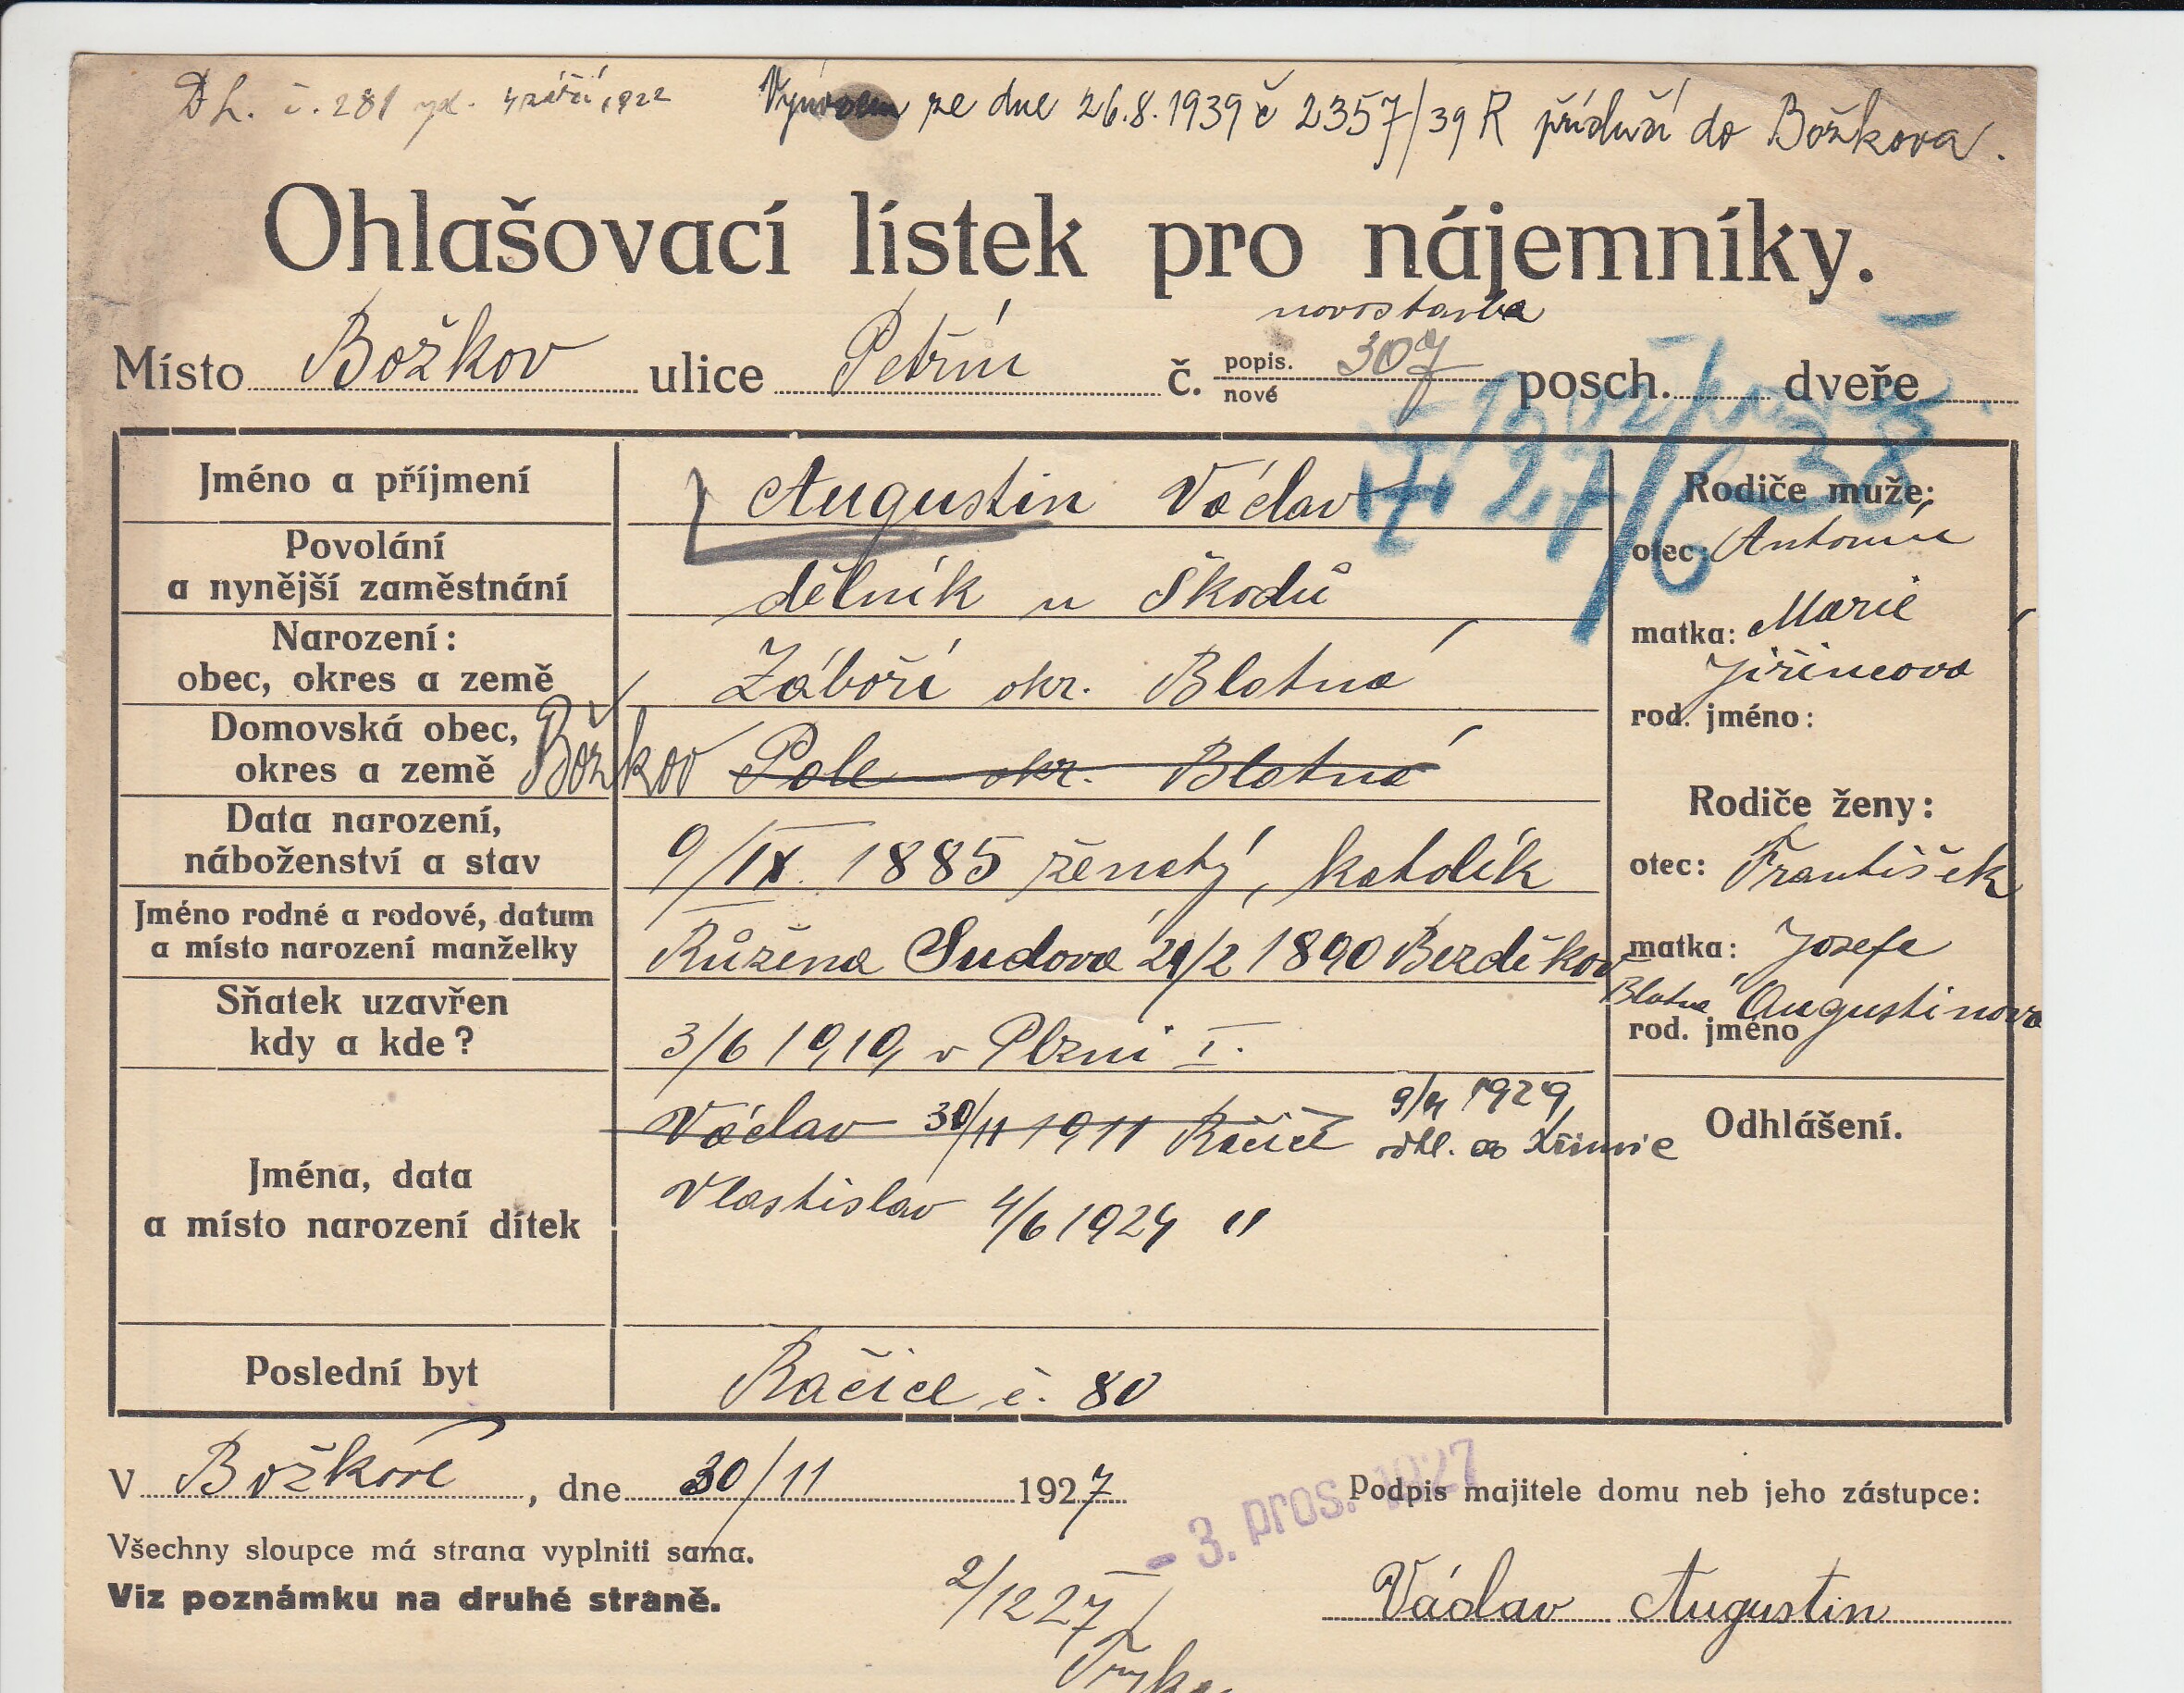 D L. č. 281 vyd. 4 září 1922 Výnosem ze dne 26.8.1939 č 2357/39 R přísluší do Božkova.
Ohlašovací lístek pro nájemníky.
novostavba
Místo Božkov ulice Petřín č. popis. nové 307 posch. dveře
27/6 38
Jméno a příjmení Augustin Václav
Povolání a nynější zaměstnání dělník u Škodů
Narození: obec, okres a země Záboří okr. Blatná
Domovská obec, okres a země Božkov Pole okr. Blatná
Data narození, náboženství a stav 9/IX. 1885 ženatý, katolík
Jméno rodné a rodové, datum a místo narození manželky Růžena Sudová 21/2 1890 Bezděkov Blatná
Sňatek uzavřen kdy a kde? 3/6 1919, v Plzni I.
Jména, data a místo narození dítek
Václav 30/11 1911 Račice 1929, odhl. do Křimic
Vlastislav 4/6 1924 "
Poslední byt Račice č. 80
Rodiče muže:
otec: Antonín
matka: Marie
Jiřincova
rod. jméno:
Rodiče ženy:
otec: František
matka: Josefa
Augustinova
rod. jméno
Odhlášení.
V Božkově, dne 30/11 1927
- 3. pros. 1927
Podpis majitele domu neb jeho zástupce:
Všechny sloupce má strana vyplniti sama.
Viz poznámku na druhé straně.
2/12 27
Václav Augustin